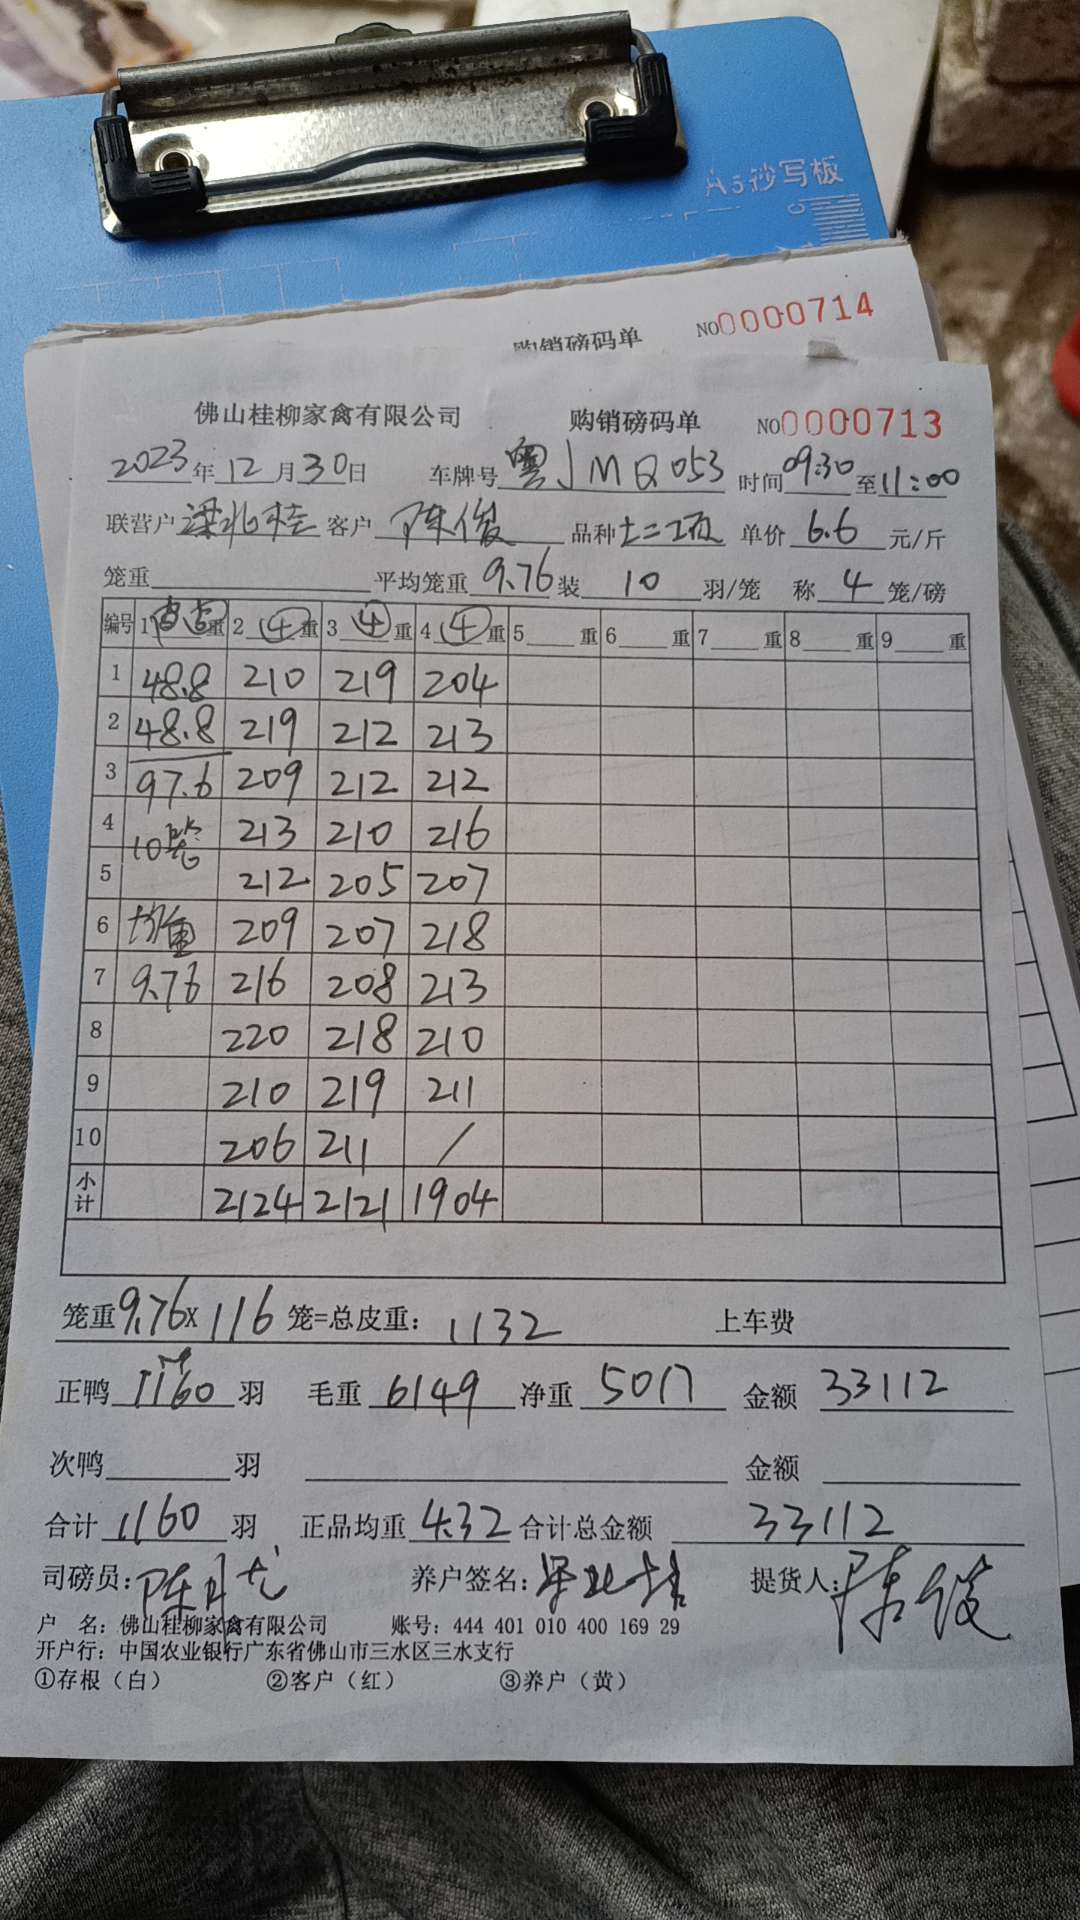 A5抄写板
购销磅码单 NO0000714
佛山桂柳家禽有限公司 购销磅码单 NO0000713
2023年12月30日 车牌号粤JMQ053 时间09:30至11:00
联营户梁北桂 客户陈俊 品种 单价6.6元/斤
笼重 平均笼重9.76装10羽/笼 称4笼/磅
编号 1重 2④重 3④重 4④重 5重 6重 7重 8重 9重
1 48.8 210 219 204
2 48.8 219 212 213
3 97.6 209 212 212
4 10笼 213 210 216
5 212 205 207
6 均重 209 207 218
7 9.76 216 208 213
8 220 218 210
9 210 219 211
10 206 211 /
小计 2124 2121 1904
笼重9.76x116笼=总皮重：1132 上车费
正鸭1160羽 毛重6149 净重5017 金额33112
次鸭羽 金额
合计1160羽 正品均重4.32 合计总金额33112
司磅员： 养户签名：梁北桂 提货人：陈俊
户 名：佛山桂柳家禽有限公司 账号：444 401 010 400 169 29
开户行：中国农业银行广东省佛山市三水区三水支行
①存根（白） ②客户（红） ③养户（黄）